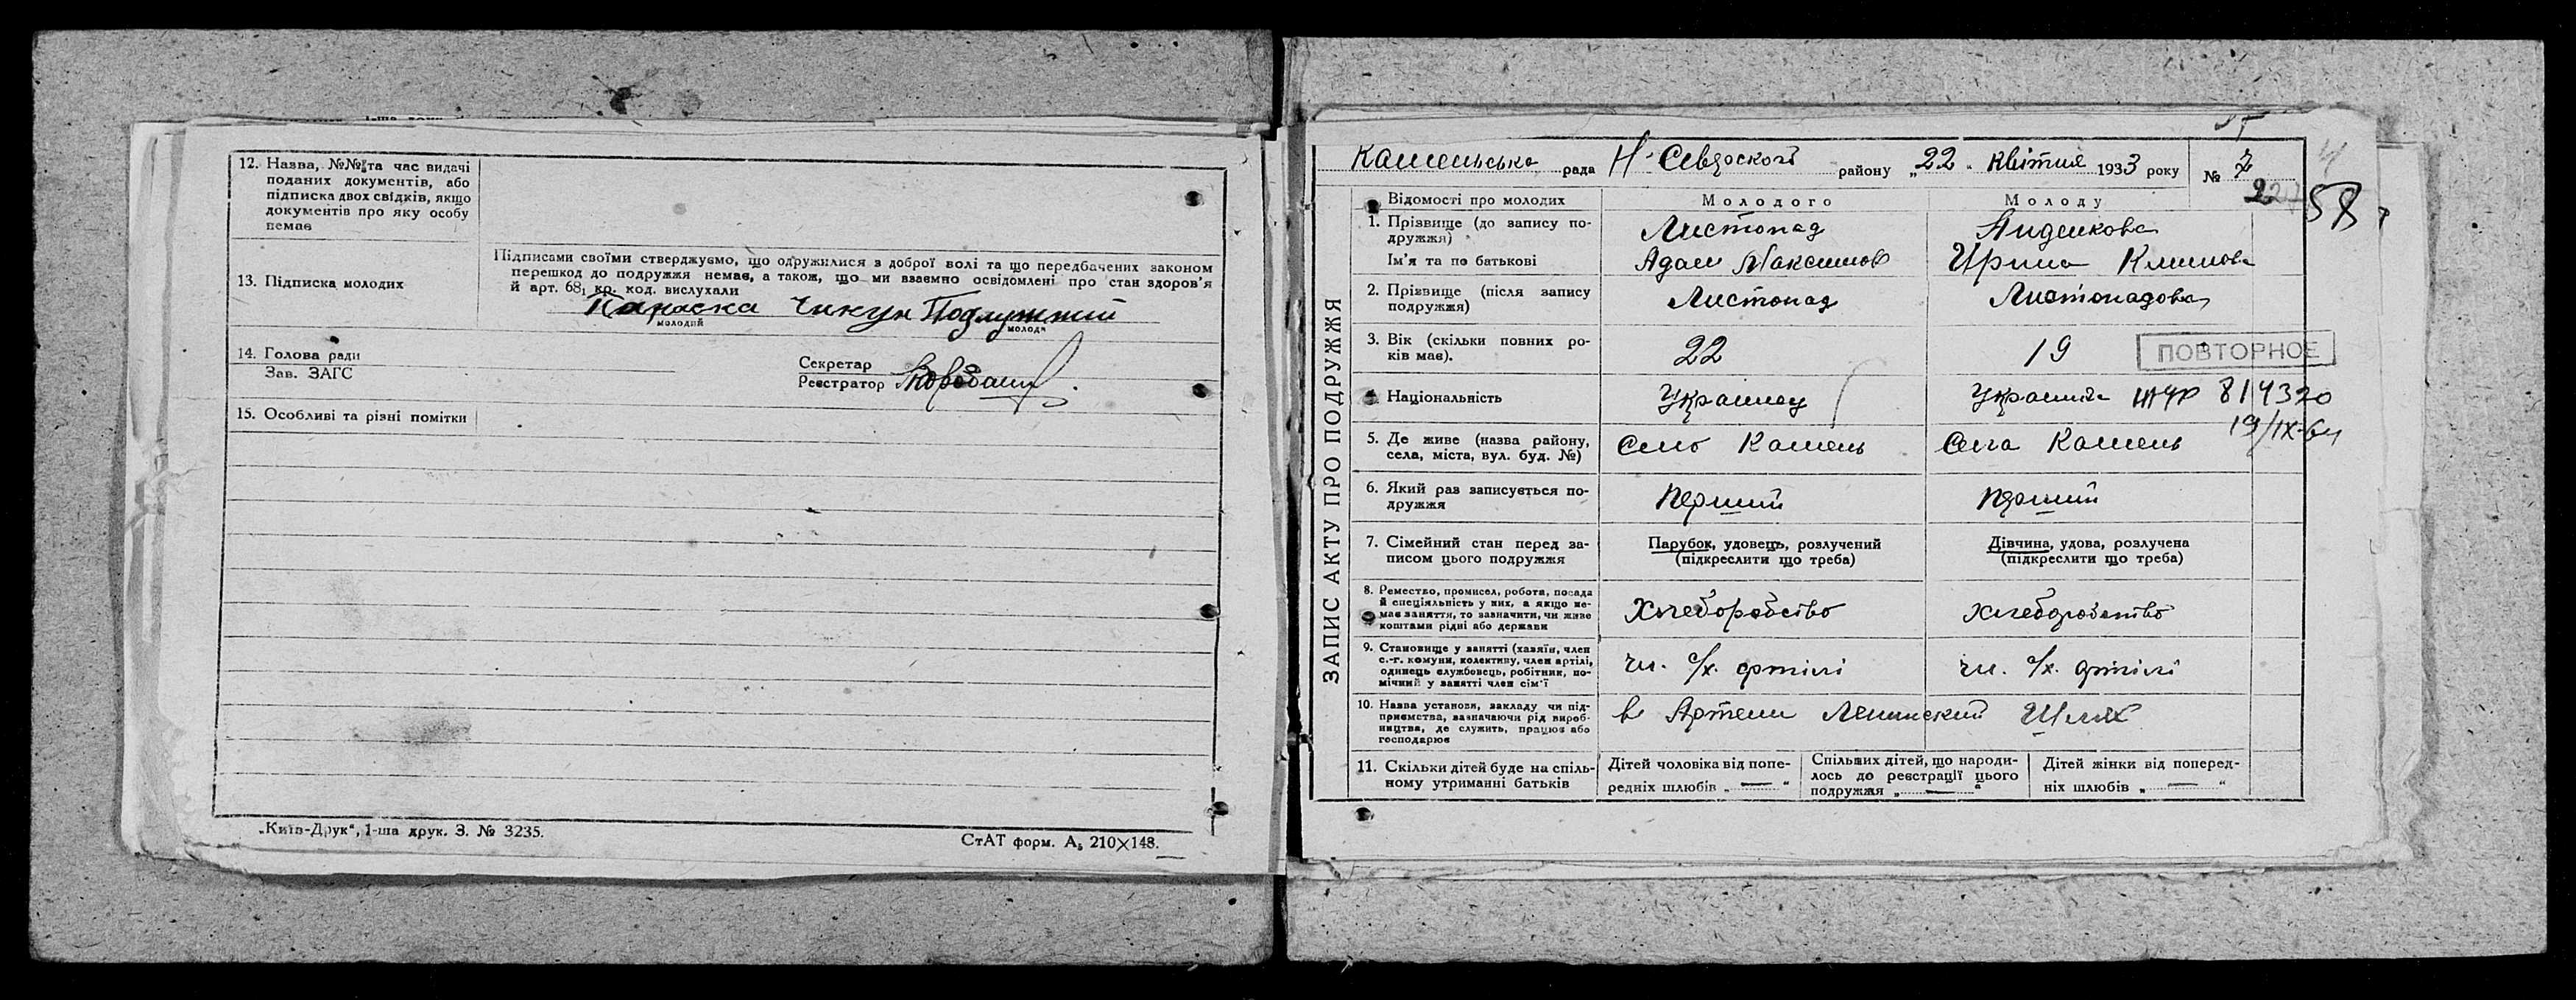 12. Назва, №№ та час видачі
поданих документів, або
підписка двох свідків, якщо
документів про яку особу
немає
13. Підписка молодих
Підписами своїми стверджуємо, що одружилися з доброї волі та що передбачених законом
перешкод до подружжя немає, а також, що ми взаємно освідомлені про стан здоров'я
й арт. 68₁ кр. код. вислухали
Параска Чикун
молодий
молода
14. Голова ради
Зав. ЗАГС
Секретар
Реєстратор
15. Особливі та різні помітки
„Київ-Друк“, 1-ша друк. З. № 3235.
СтАТ форм. А₅ 210×148.
ЗАПИС АКТУ ПРО ПОДРУЖЖЯ
Каменьська рада Н-Сіверского району „22“ квітня 1933 року
№ 7
2
58
Відомості про молодих
Молодого
Молоду
1. Прізвище (до запису по-
дружжя)
Ім'я та по батькові
Листопад
Адам Максимов
Ирина Климова
2. Прізвище (після запису
подружжя)
Листопад
Листопадова
3. Вік (скільки повних ро-
ків має).
22
19
ПОВТОРНОЕ
4. Національність
Украинец
Украинка
814320
19/IX-64
5. Де живе (назва району,
села, міста, вул. буд. №)
Село Камень
Села Камень
6. Який раз записується по-
дружжя
перший
перший
7. Сімейний стан перед за-
писом цього подружжя
Парубок, удовець, розлучений
(підкреслити що треба)
Дівчина, удова, розлучена
(підкреслити що треба)
8. Ремество, промисел, робота, посада
й спеціяльність у них, а якщо не-
має заняття, то зазначити, чи живе
коштами рідні або держави
Хлеборобство
Хлеборобство
9. Становище у занятті (хазяїн, член
с.-г. комуни, колективу, член артілі,
одинець службовець, робітник, по-
мічний у занятті член сім'ї
чл. с/х. артілі
чл. с/х. артілі
10. Назва установи, закладу чи під-
приємства, зазначаючи рід вироб-
ництва, де служить, працює або
господарює
в Артели Ленинский Шлях
11. Скільки дітей буде на спіль-
ному утриманні батьків
Дітей чоловіка від попе-
редніх шлюбів „ — “
Спільних дітей, що народи-
лось до реєстрації цього
подружжя „ — “
Дітей жінки від поперед-
ніх шлюбів „ — “